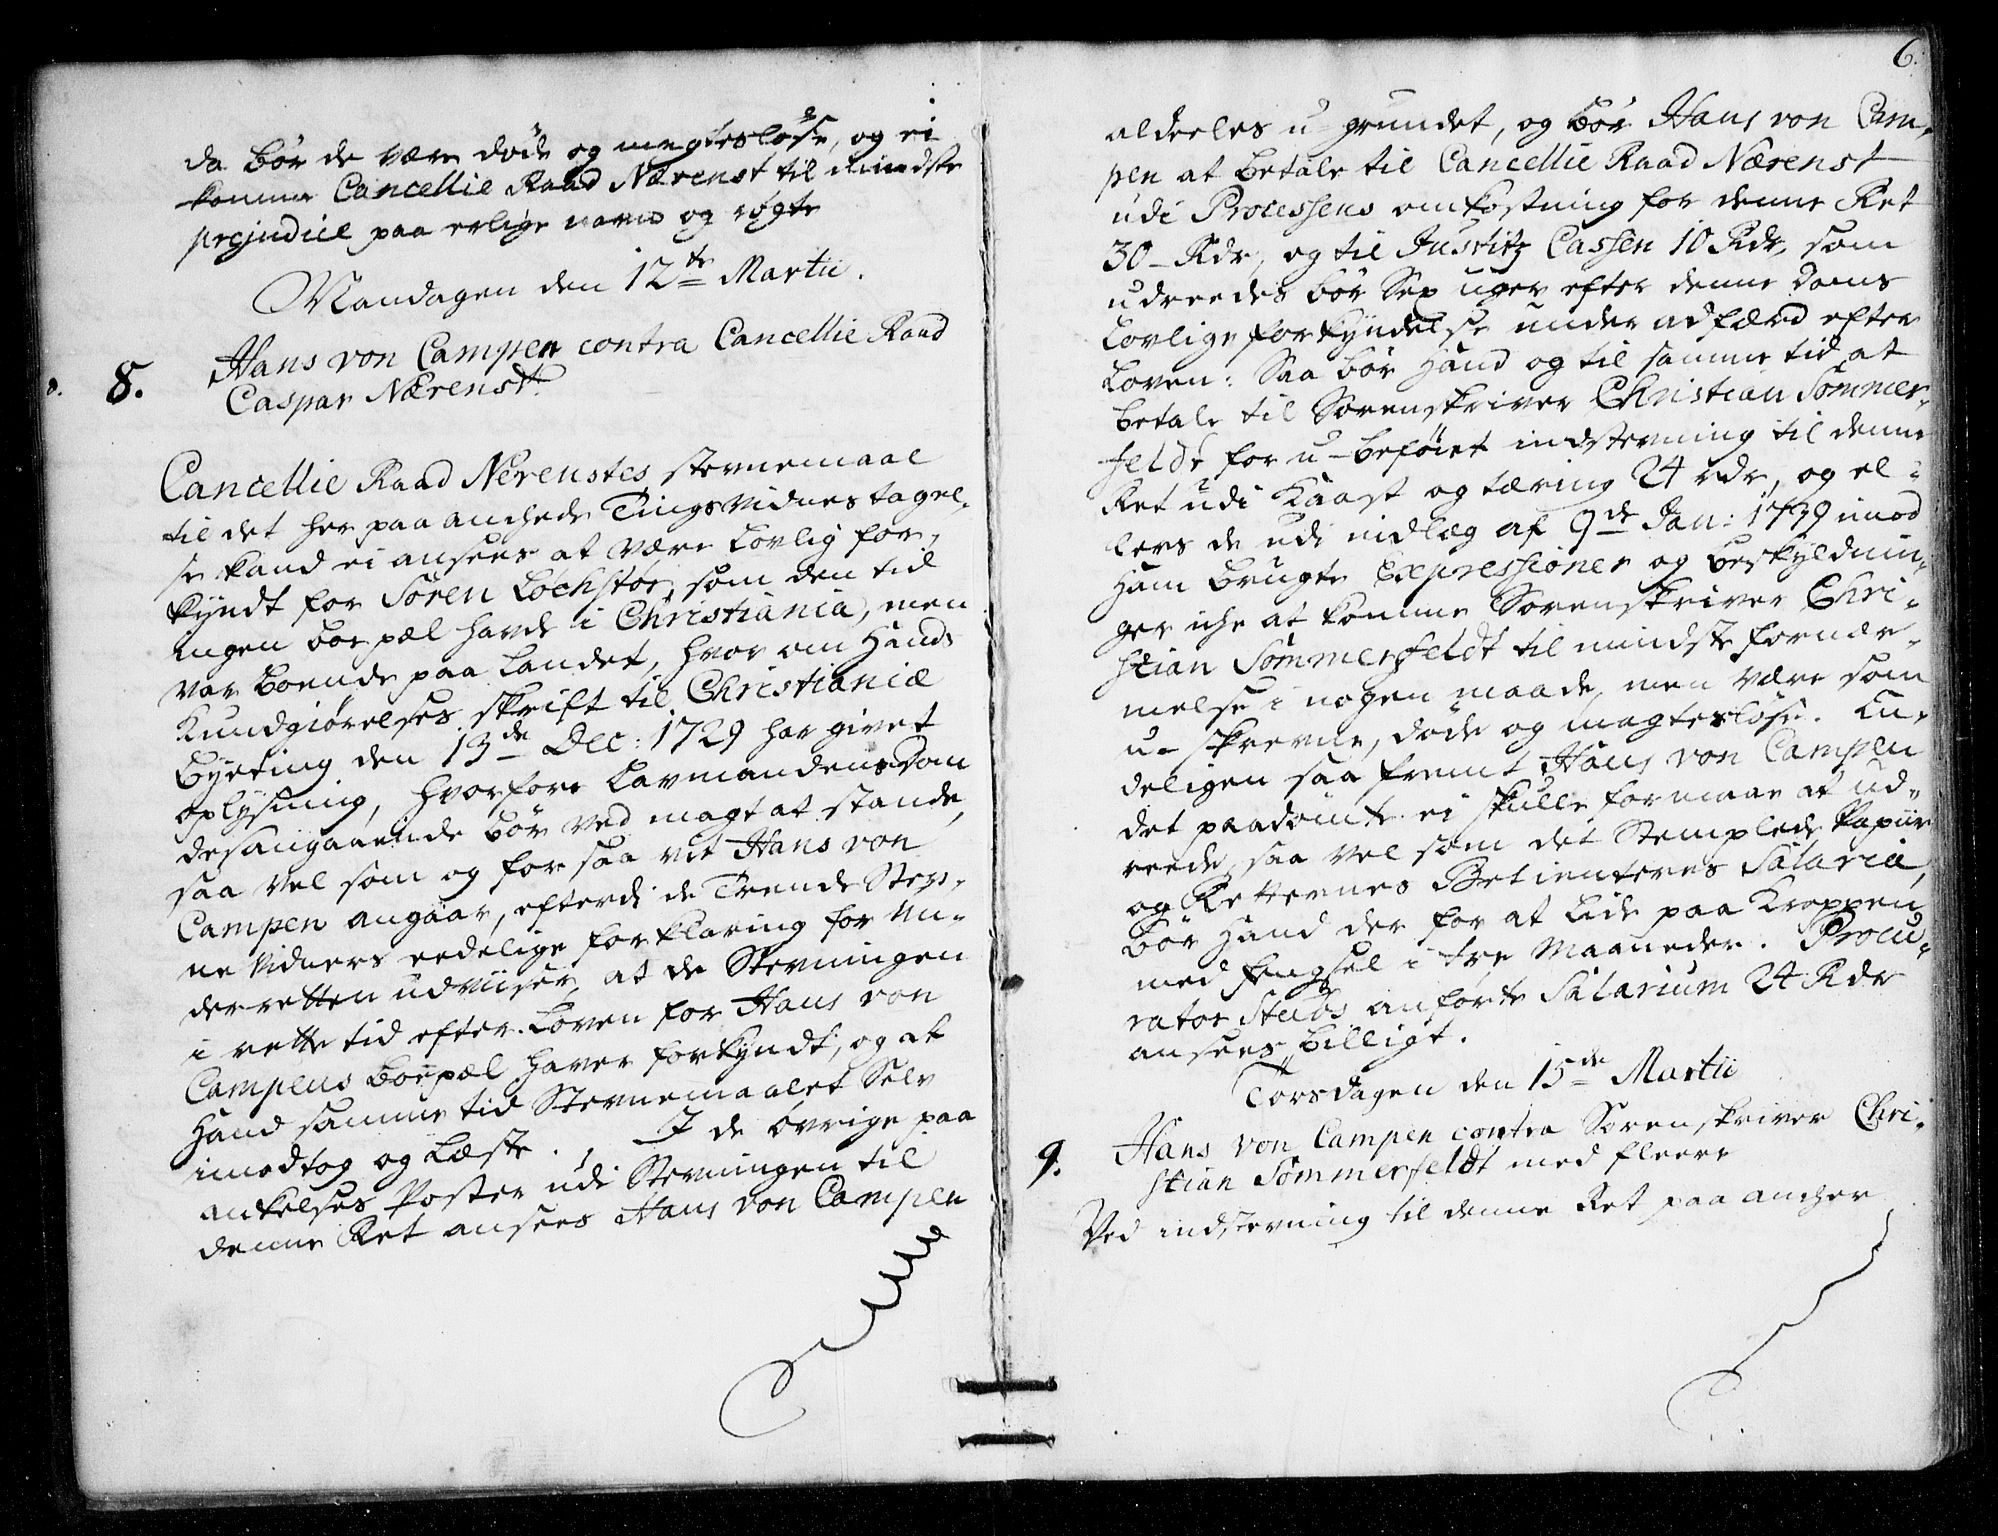 da bör de være döde og magteslöse, og ei
komme Cancellie Raad Nærenst til mindste
prejudice paa erlige navn og rögte
Mandagen den 12te Martii.
8. Hans von Campen contra Cancellie Raad
Caspar Nærenst.
Cancellie Raad Nerenstes stevnemaal
til det her paa anchede Tings vidnes tagel,
se kand ei ansees at være lovlig for,
kyndt for Sören Lochstör, som den tid
ingen boepæl havde i Christiania, men
var boende paa Landet, hvor om hands
Kundgiörelses skrift til Christianiæ
Byeting den 13de Dec: 1729 har givet
oplysning, hvorfore Lavmandens Dom
desangaaende bör ved magt at stande,
saa vel som og for saa vit Hans von
Campen angaar, efterdi de Trende Stev,
ne vidners eedelige forklaring for un-
derretten udviiser, at de Stevningen
i rette tid efter Loven for Hans von
Campens boepæl haver forkyndt, og at
hand samme tid Stevnemaalet Selv
imodtog og læste. I de övrige paa
ankelses Poster udi Stevningen til
denne Ret ansees Hans von Campen
6.
aldeeles u-grundet, og bör Hans von Cam,
pen at betale til Cancellie Raad Nærenst
udi Processens omkostning for denne Ret
30 Rdr, og til Justitz Cassen 10 Rdr, som
udreedes bör Sex uger efter denne Doms
Lovlige forkyndelse under adfærd efter
Loven: Saa bör hand og til samme tid at
betale til Sorenskriver Christian Sommer,
feldt for u-beföiet indstevning til denne
Ret udi Kaast og tæring 24 rdr, og el-
lers de udi indlæg af 9de Jan: 1739 imod
ham brugte Expressioner og beskyldnin,
ger iche at komme Sorenskriver Chri-
stian Sommerfeldt til mindste fornær-
melse i nogen maade, men være som
u-skrevne, döde og magteslöse. En-
deligen saa fremt Hans von Campen
det paadömte ei skulle formaae at ud-
reede, saa vel som det Stemplede Papiir
og Retternes Betienteres Salaria,
bör hand der for at lide paa Kroppen
med fengsel i tre Maaneder. Procu-
rator Stubs anförte Salarium 24 Rdr
ansees billigt.
Torsdagen den 15de Martii
9. Hans von Campen contra Sorenskriver Chri-
stian Sommerfeldt med fleere
Ved indstevning til denne Ret paa ancher